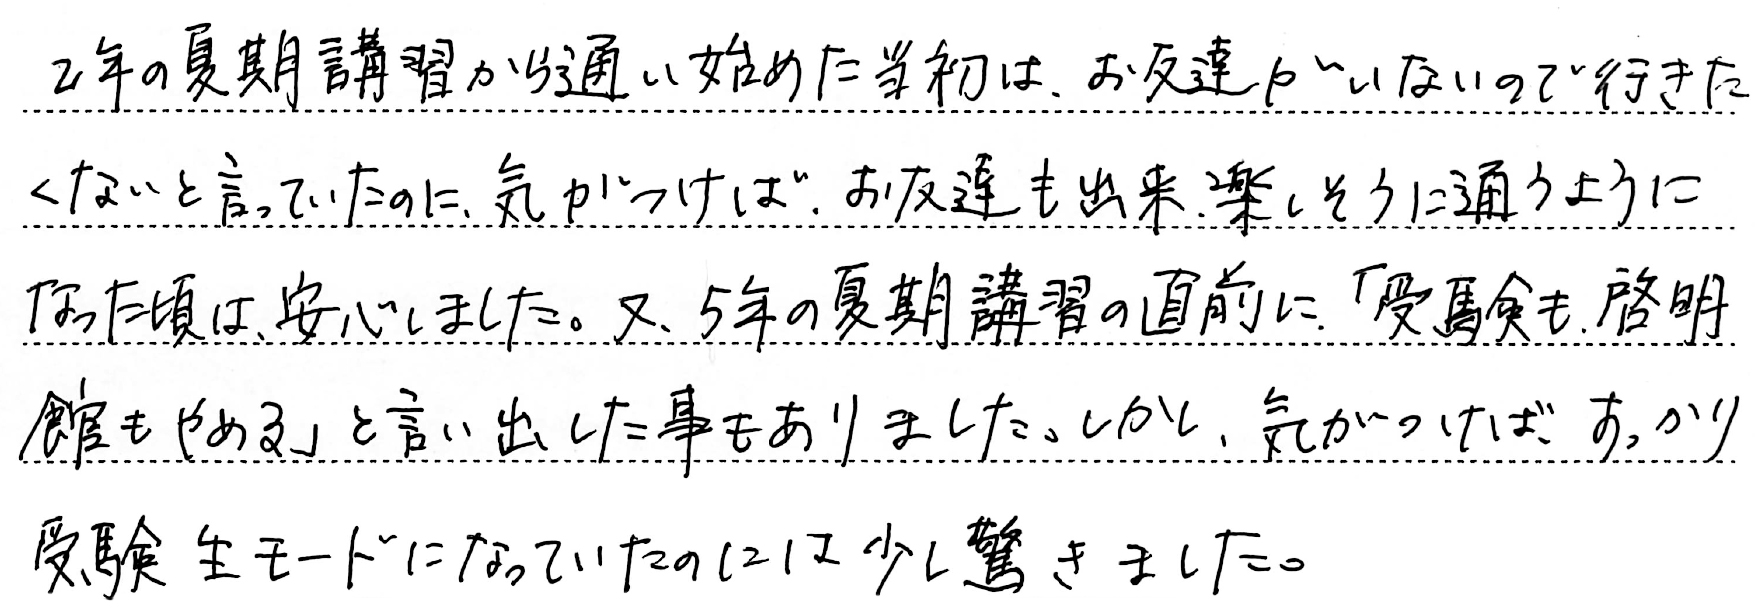 2年の夏期講習から通い始めた当初は、お友達がいないので行きた
くないと言っていたのに、気がつけば、お友達も出来、楽しそうに通うように
なった頃は、安心しました。又、5年の夏期講習の直前に、「受験も、啓明
館もやめる」と言い出した事もありました。しかし、気がつけば、すっかり
受験生モードになっていたのには少し驚きました。